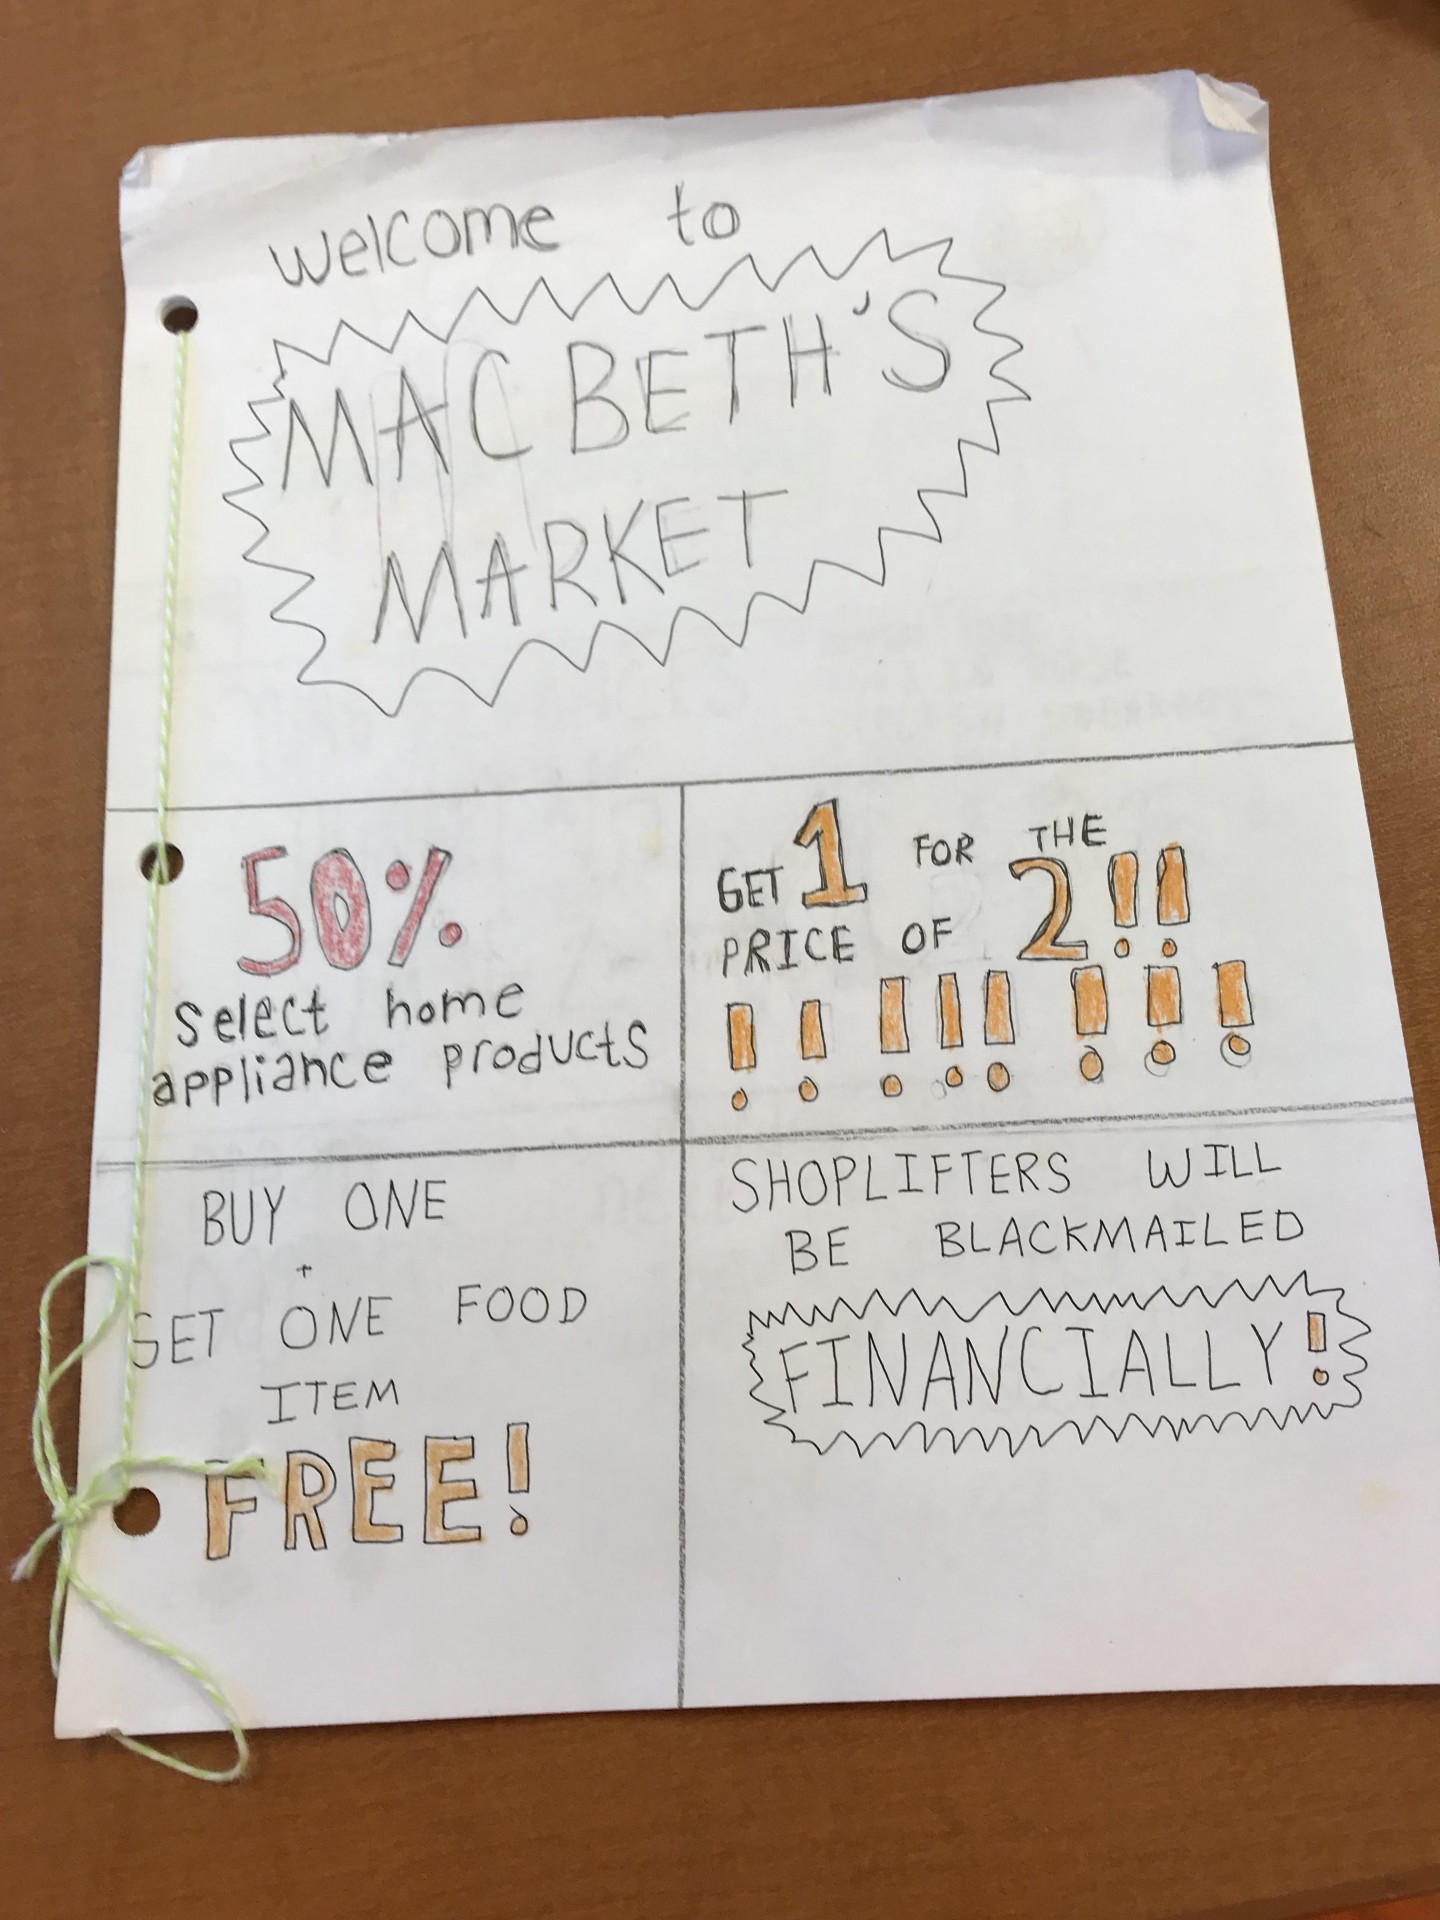 welcome to
MAC BETH'S
MARKET
50%
select home
appliance products
GET 1 FOR THE
PRICE OF 2!!
!!!!!!!!
BUY ONE
+
GET ONE FOOD
ITEM
FREE!
SHOPLIFTERS WILL
BE BLACKMAILED
FINANCIALLY!